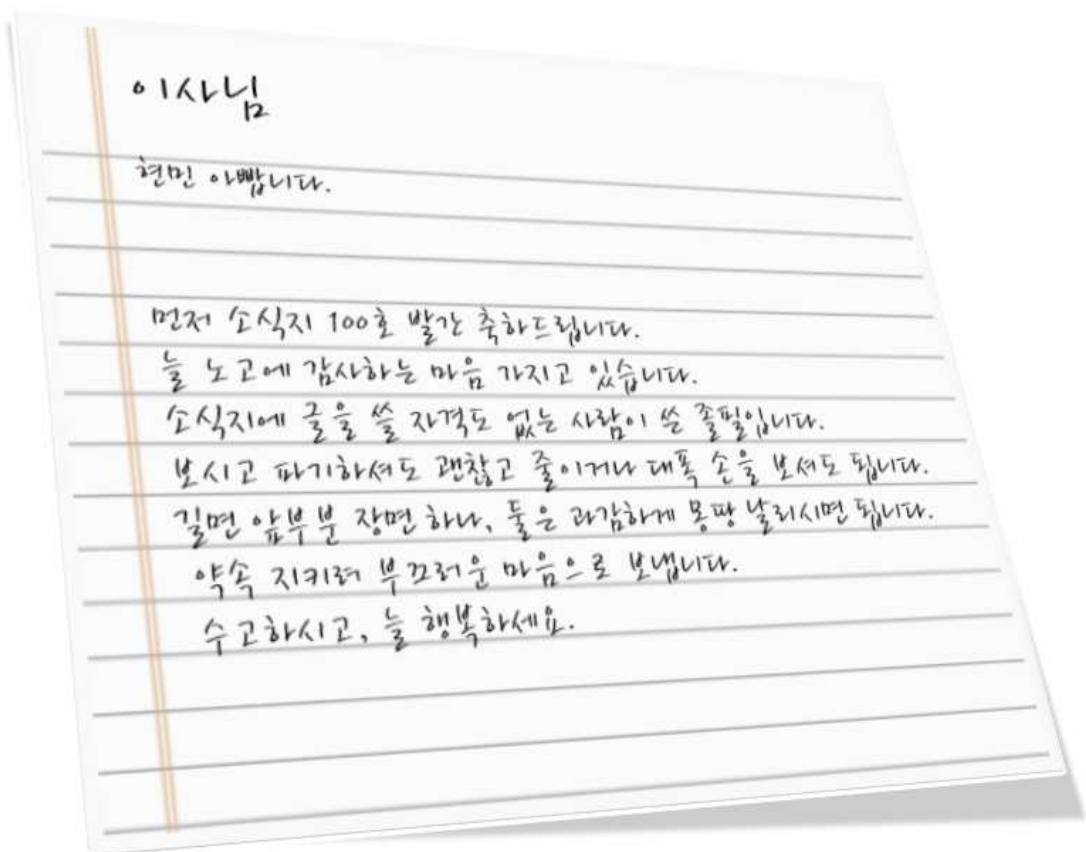 이사님
현민 아빱니다.
먼저 소식지 100호 발간 축하드립니다.
늘 노고에 감사하는 마음 가지고 있습니다.
소식지에 글을 쓸 자격도 없는 사람이 쓴 졸필입니다.
보시고 파기하셔도 괜찮고 줄이거나 대폭 손을 보셔도 됩니다.
길면 앞부분 장면 하나, 둘은 과감하게 몽땅 날리시면 됩니다.
약속 지키려 부끄러운 마음으로 보냅니다.
수고하시고, 늘 행복하세요.